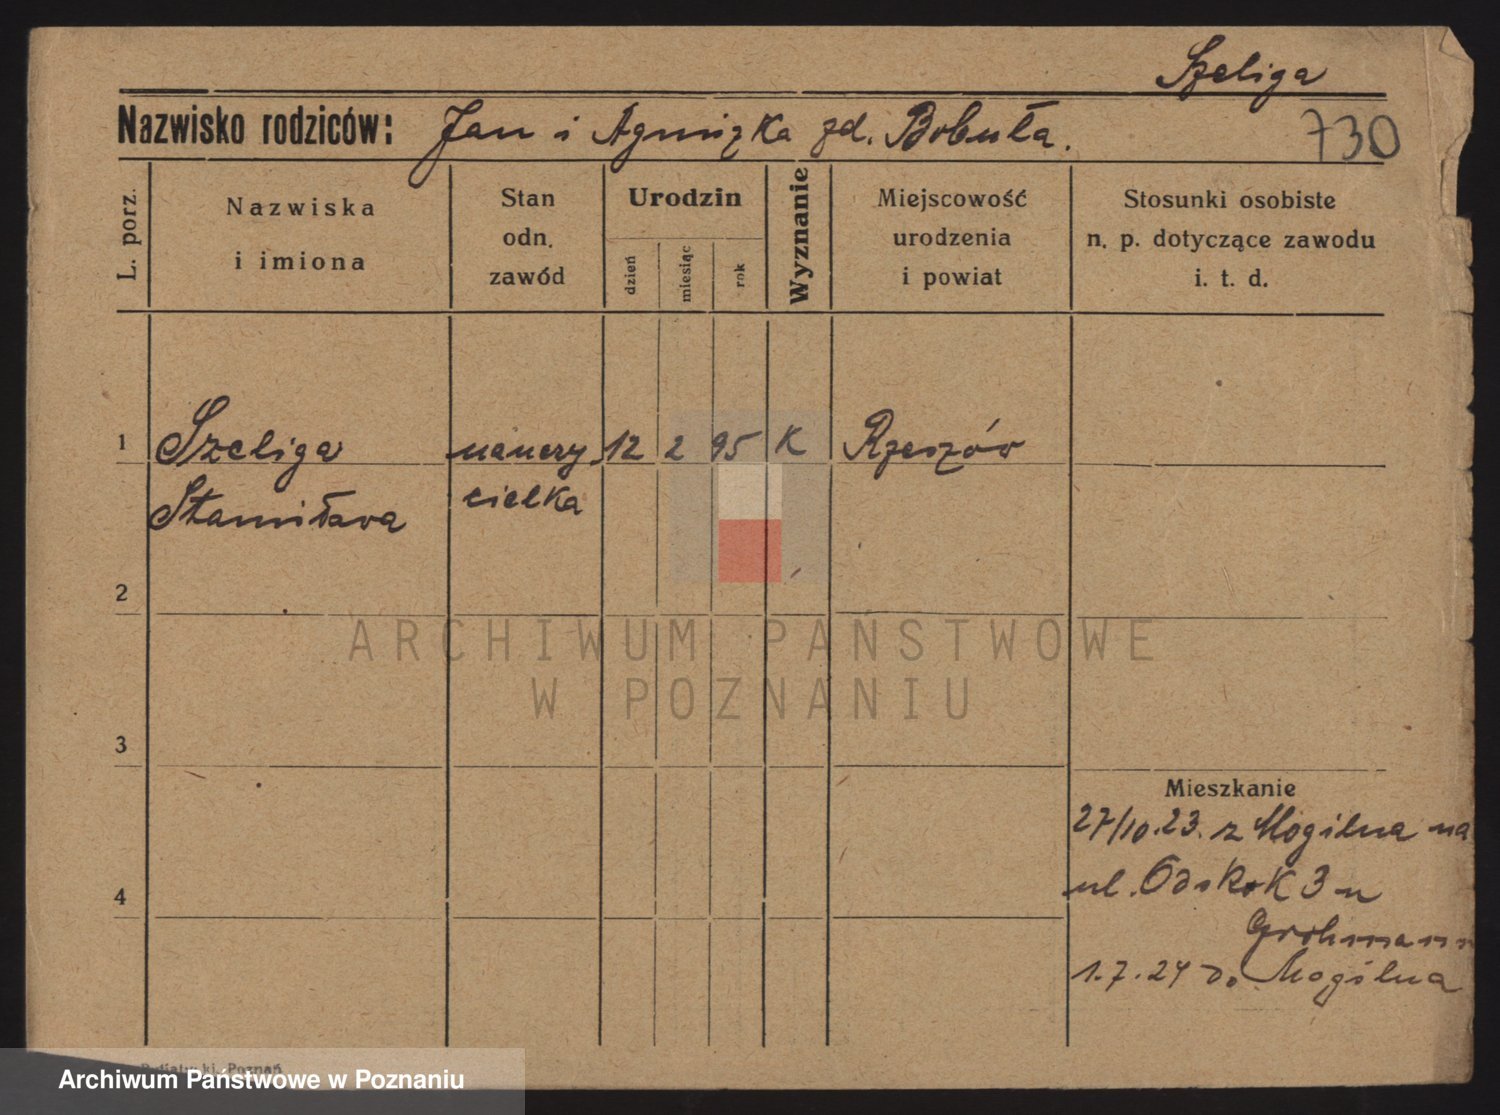 Szeliga
Nazwisko rodziców: Jan i Agnizka zd. Bobuła.
730
L. porz.
Nazwiska
i imiona
Stan
odn.
zawód
Urodzin
dzień
miesiąc
rok
Wyznanie
Miejscowość
urodzenia
i powiat
Stosunki osobiste
n. p. dotyczące zawodu
i. t. d.
1 Szeliga nauczy 12 2 95 K Rzeszów
Stanisława cielka
2
ARCHIWUM PAŃSTWOWE
W POZNANIU
3
Mieszkanie
27/10.23. z Mogilna na
ul. Odskok 3 u
4
Grohmann
1.7.24 do Mogilna
Poznań
Archiwum Państwowe w Poznaniu